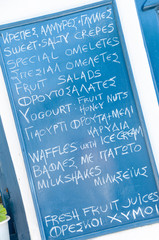 ΚΡΕΠΕΣ ΑΛΜΥΡΕΣ-ΓΛΥΚΙΕΣ
SWEET-SALTY CREPES
SPECIAL OMELETES
ΣΠΕΣΙΑΛ ΟΜΕΛΕΤΕΣ
FRUIT SALADS
ΦΡΟΥΤΟΣΑΛΑΤΕΣ
YOGOURT-FRUIT
HONEY NUTS
ΓΙΑΟΥΡΤΙ ΦΡΟΥΤΑ ΜΕΛΙ
ΚΑΡΥΔΙΑ
WAFFLES WITH ICECREAM
ΒΑΦΛΕΣ ΜΕ ΠΑΓΩΤΟ
MILKSHAKES ΜΙΛΚΣΕΪΚΣ
FRESH FRUIT JUICES
ΦΡΕΣΚΟΙ ΧΥΜΟΙ